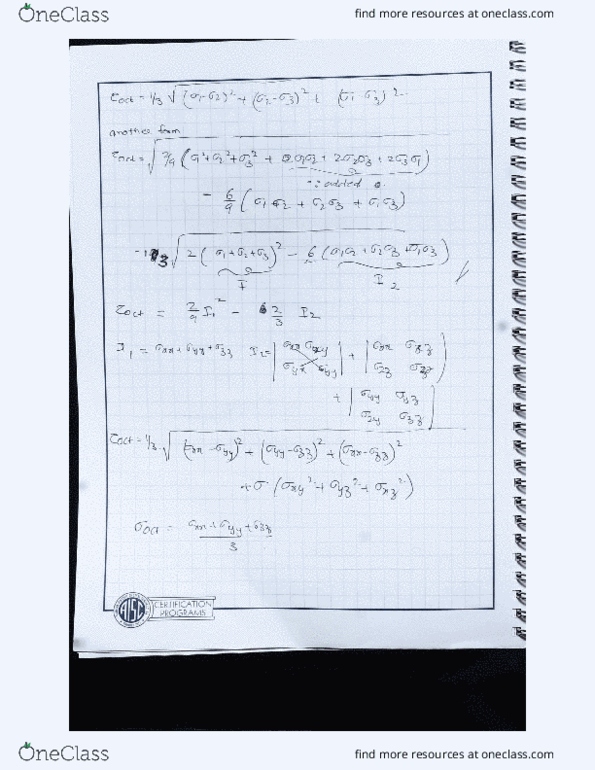 OneClass
find more resources at oneclass.com
τoct = 1/3 √ (σ1-σ2)² + (σ2-σ3)² + (σ1-σ3)²
another form
τoct = √ 2/9 (σ1²+σ2²+σ3² + 2σ1σ2 + 2σ2σ3 + 2σ3σ1)
∵ added
- 6/9 (σ1σ2 + σ2σ3 + σ1σ3)
= 1/3 √ 2 (σ1+σ2+σ3)² - 6 (σ1σ2 + σ2σ3 + σ1σ3)
I I2
τoct = 2/9 I1² - 6 2/3 I2
I1 = σxx + σyy + σzz I2 = | σxx σxy | + | σxx σxz |
| σyx σyy | | σzx σzz |
+ | σyy σyz |
| σzy σzz |
τoct = 1/3 √ (σxx - σyy)² + (σyy - σzz)² + (σxx - σzz)²
+ σ (σxy² + σyz² + σxz²)
σoct = σxx + σyy + σzz
3
AISC
CERTIFICATION
PROGRAMS
OneClass
find more resources at oneclass.com